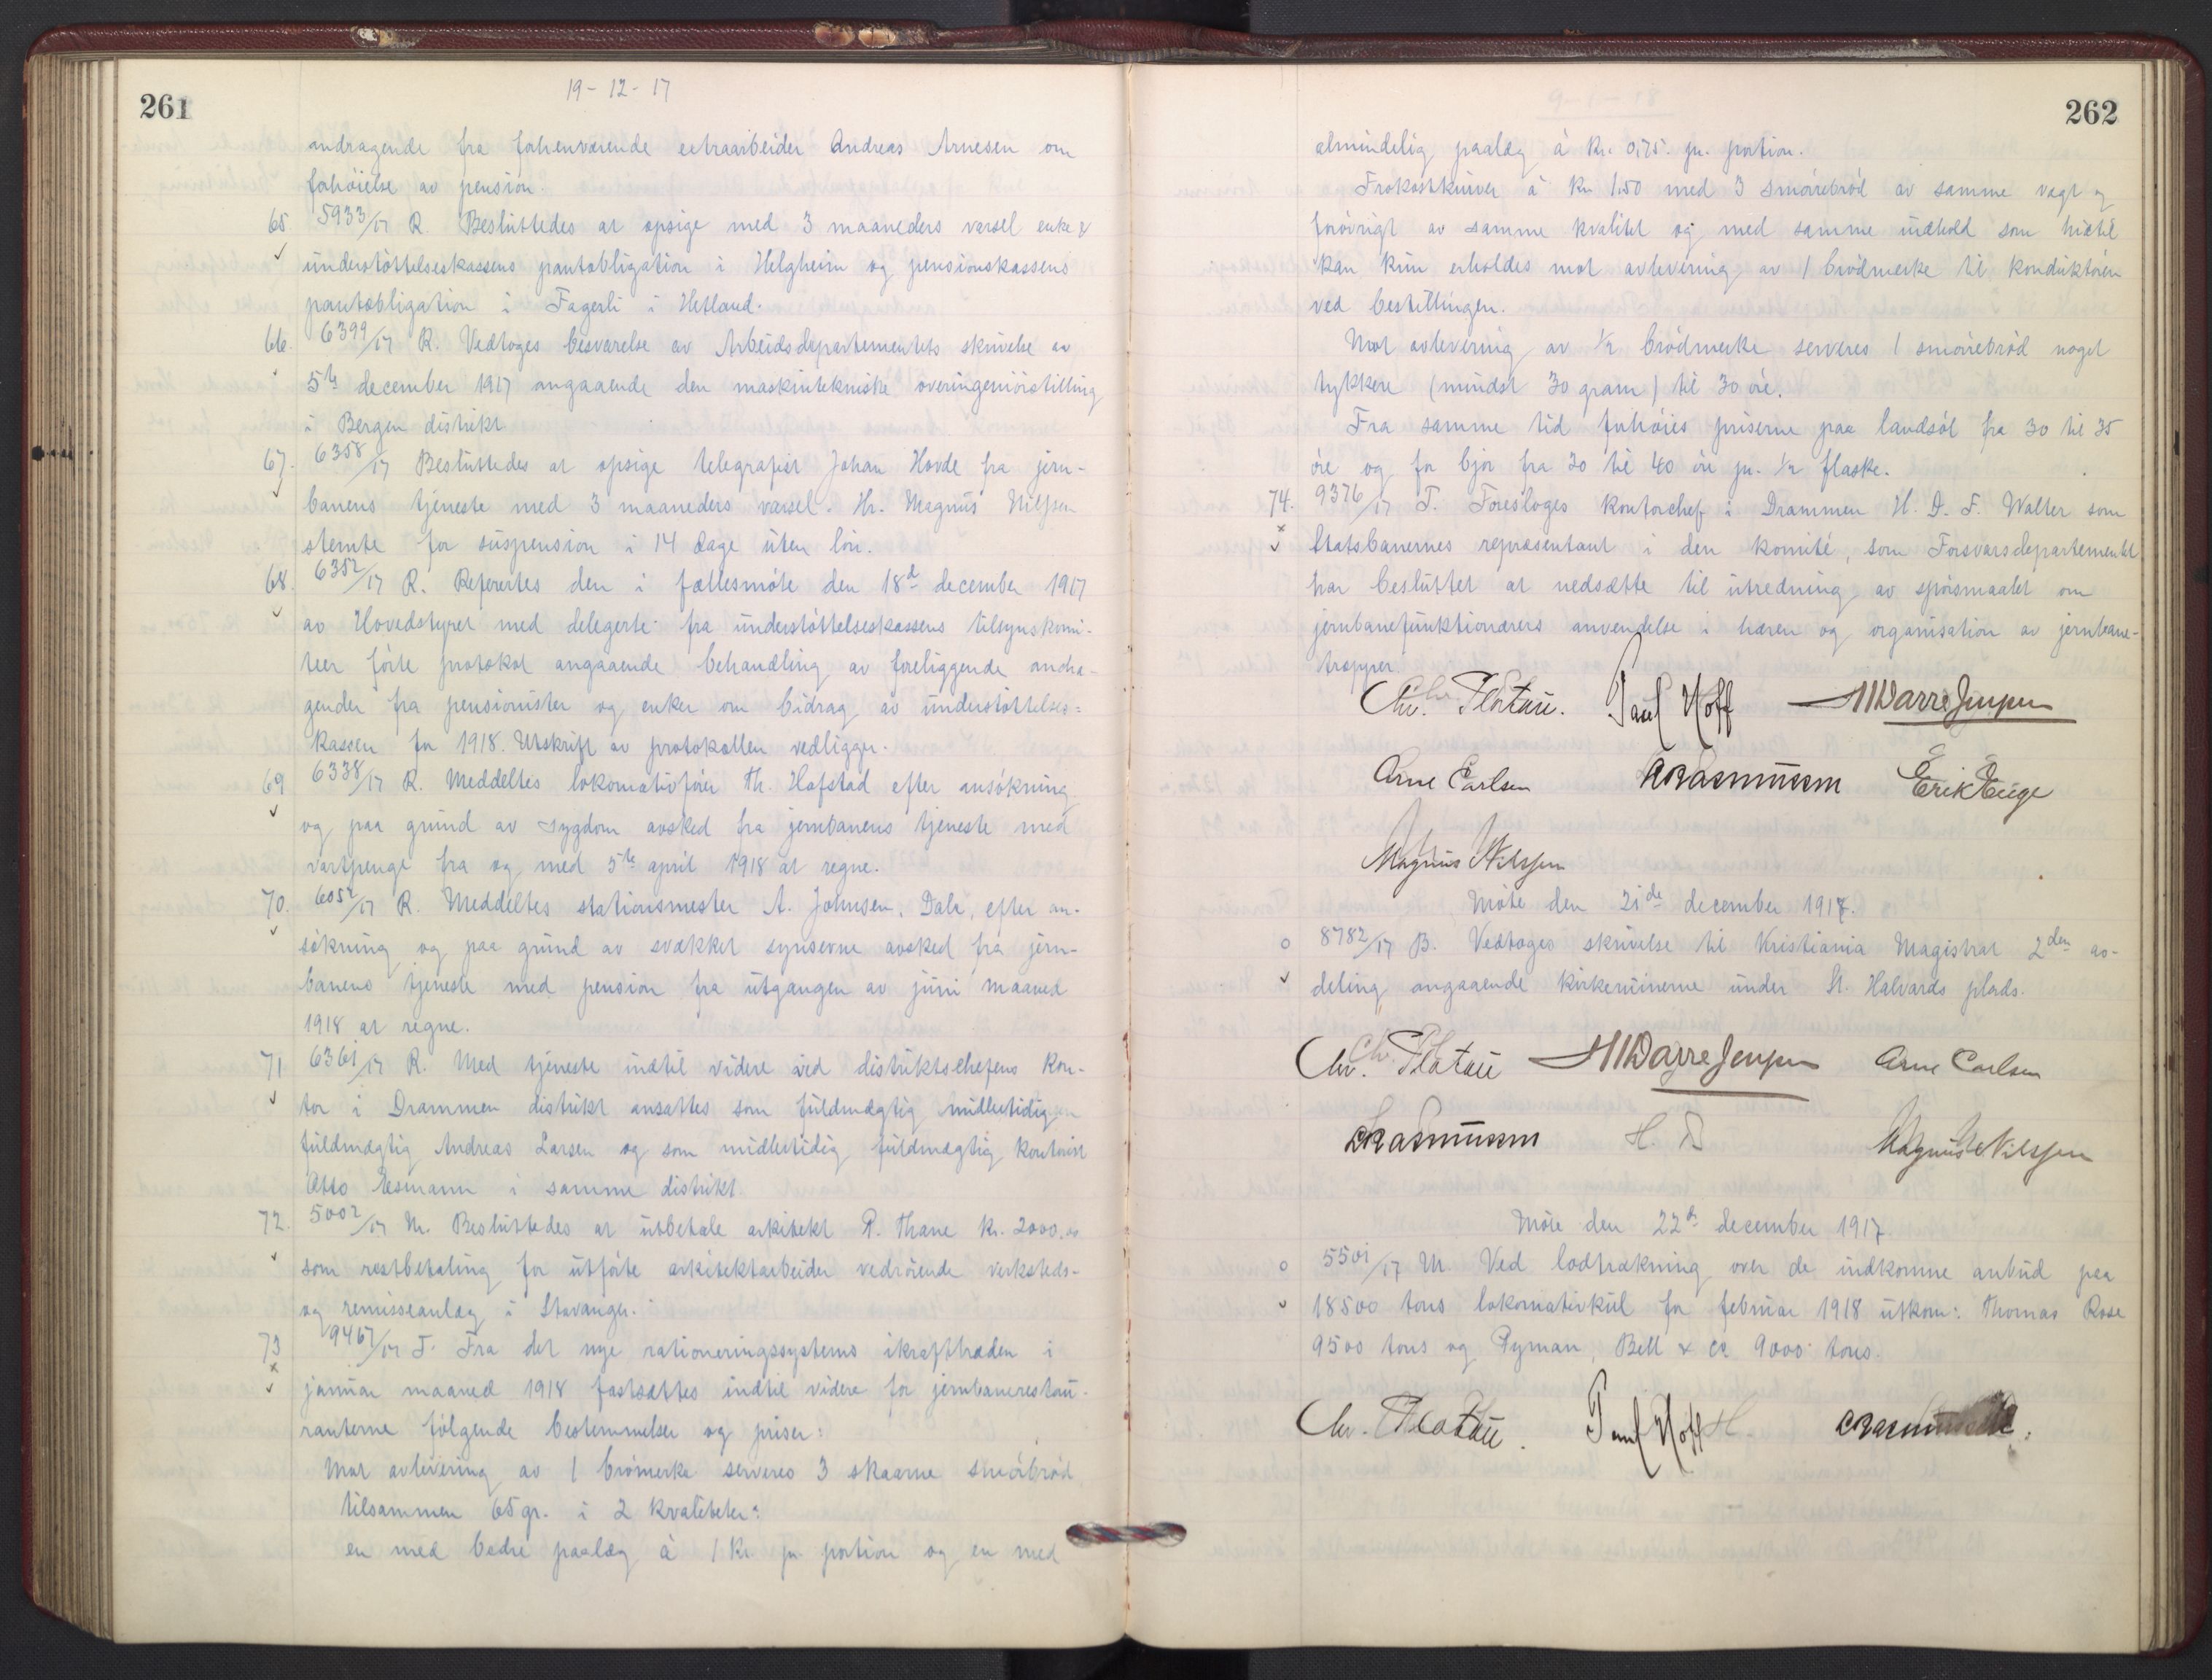 261
19-12-17
andragende fra forhenværende extraarbeider Andreas Arnesen om
forhöielse av pension.
65. 5933/17 R. Besluttedes at opsige med 3 maaneders varsel enke &
understöttelseskassens pantobligation i Helgheim og pensionskassens
pantobligation i Fagerli i Hetland.
66. 6399/17 R. Vedtoges besvarelse av Arbeidsdepartementets skrivelse av
5te december 1917 angaaende den maskintekniske overingeniörstilling
i Bergen distrikt
67. 6358/17 Besluttedes at opsige telegrafist Johan Hovde fra jern-
banens tjeneste med 3 maaneders varsel. Hr. Magnus Nilssen
stemte for suspension i 14 dage uten lön.
68. 6352/17 R. Refereertes den i fællesmöte den 18de december 1917
av Hovedstyret med delegerte fra understöttelseskassens tilsynskomi-
teer förte protokol angaaende behandling av foreliggende andra-
gender fra pensionister og enker om bidrag av understöttelses=
kassen for 1918. Utskrift av protokollen vedligger.
69 6338/17 R. Meddeltes lokomotivförer Th. Hafstad efter ansökning
og paa grund av sygdom avsked fra jernbanens tjeneste med
vartpenge fra og med 5te april 1918 at regne.
70. 6052/17 R. Meddeltes stationsmester A. Johnsen, Dale, efter an-
sökning og paa grund av svækket synsevne avsked fra jern-
banens tjeneste med pension fra utgangen av juni maaned
1918 at regne.
71 6361/17 R. Med tjeneste indtil videre ved distriktschefens kon-
tor i Drammen distrikt ansattes som fuldmægtig midlertidig
fuldmægtig Andreas Larsen og som midlertidig fuldmægtig kontorist
Otto Nesmann i samme distrikt.
72. 5002/17 M. Besluttedes at utbetale arkitekt P. Thane kr. 2000.00
som restbetaling for utförte arkitektarbeider vedrörende verksteds-
og remisseanlæg i Stavanger.
73 9467/17 T. Fra det nye rationeringssystems ikrafttræden i
januar maaned 1918 fastsættes indtil videre for jernbanerestau-
ranterne fölgende bestemmelser og priser:
Mot avlevering av 1 brömerke serveres 3 skaarne smörbröd
tilsammen 65 gr. i 2 kvaliteter:
en med bedre paalæg à 1 kr pr. portion og en med
262
9-1-18
almindelig paalæg à kr. 0,75. pr. portion.
Frokostkurver à kr 1.50 med 3 smörrebröd av samme vegt og
forövrigt av samme kvalitet og med samme indhold som hittil
kan kun erholdes mot avlevering av 1 brödmerke til konduktören
ved bestillingen.
Mot avlevering av 1/2 brödmerke serveres 1 smörrebröd noget
tykkere (mindst 30 gram) til 30 öre.
Fra samme tid forhöies priserne paa landsöl fra 30 til 35
öre og for bjor fra 30 til 40 öre pr. 1/2 flaske.
74. 9376/17 T. Foresloges kontorchef i Drammen H. D. F. Walter som
Statsbanernes repræsentant i den komité, som Forsvarsdepartementet
har besluttet at nedsætte til utredning av spörsmaalet om
jernbanefunktionærers anvendelse i hæren og organisation av jernbane-
tropper.
Chr. Platou. Paul Hoff HWarreJenssen
Arne Carlsen CRasmussen Erik Eeige
Magnus Nilssen
Möte den 21de december 1917.
8782/17 B. Vedtoges skrivelse til Kristiania Magistrat 2den av-
deling angaaende kirkeruinerne under St. Halvards plads.
Chr. Platou HWarreJenssen Arne Carlsen
CRasmussen H. Magnus Nilssen
Möte den 22de december 1917.
5501/17 M Ved lodtrækning over de indkomne anbud paa
18500 tons lokomotivkul for februar 1918 utkom: Thomas Rose
9500 tons og Pyman, Bell & Co 9000 tons.
Chr. Platou. Paul Hoff H. CRasmussen.